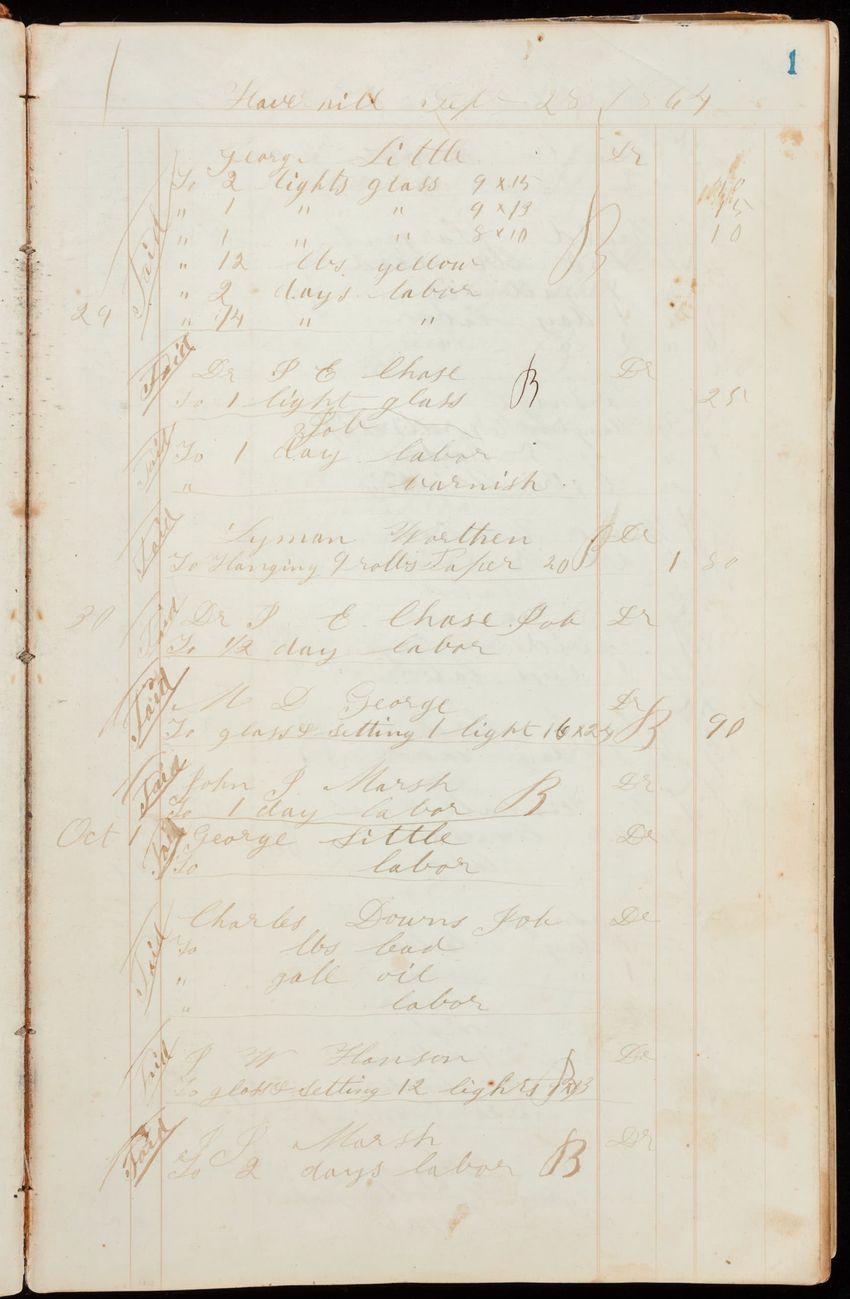 1
Haverhill Sept 28 1864
George Little Dr
To 2 lights glass 9 x 15
" 1 " " 9 x 13 15
" 1 " " 8 x 10 10
" 12 lbs yellow
" 2 days labor
29 " 1/4 " "
Paid
B
Dr P E Chase Dr
Paid To 1 light glass B 25
Job
Paid To 1 day labor
" varnish
Lyman Worthen B Dr
Paid To Hanging 9 rolls Paper 20 1 80
30 Paid Dr P E Chase Job Dr
To 1/2 day labor
M D George Dr
Paid To glass & setting 1 light 16 x 24 B 90
Paid John P Marsh Dr
To 1 day labor B
Oct 1 Paid George Little Dr
To labor
Charles Downs Job Dr
To lbs lead
Paid " gall oil
" labor
Paid P W Hanson Dr
To glass & setting 12 lights B
Paid J P Marsh Dr
To 2 days labor B